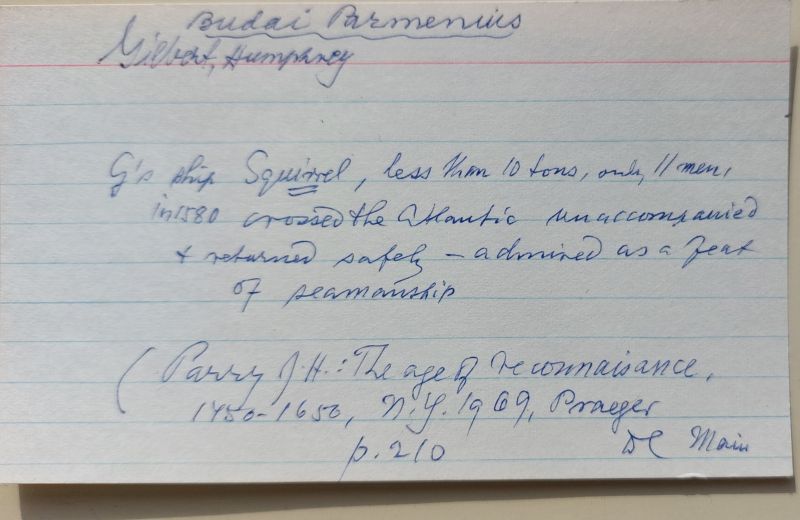 Budai Parmenius
Gilbert, Humphrey
G's ship Squirrel, less than 10 tons, only 11 men,
in 1580 crossed the Atlantic unaccompanied
+ returned safely – admired as a feat
of seamanship
(Parry J.H.: The age of reconnaisance,
1450-1650, N.Y. 1969, Praeger
p. 210 Main